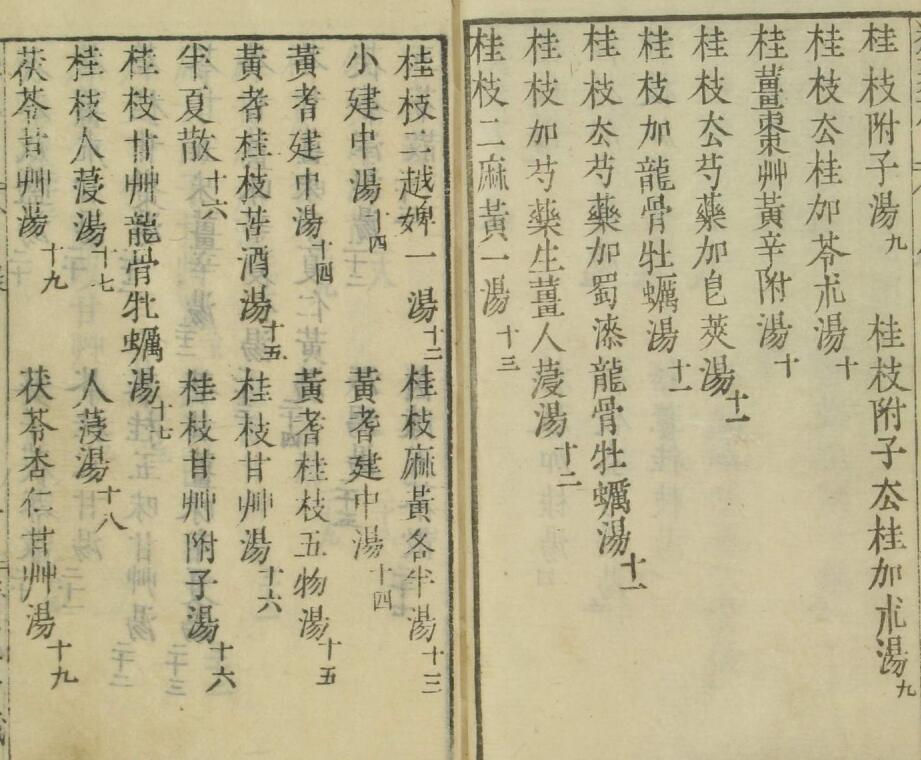 桂枝附子湯九　桂枝附子厺桂加朮湯九
桂枝厺桂加苓朮湯十
桂薑棗艸黃辛附湯十
桂枝厺芍藥加皂莢湯十一
桂枝加龍骨牡蠣湯十一
桂枝厺芍藥加蜀漆龍骨牡蠣湯十一
桂枝加芍藥生薑人蓡湯十二
桂枝二麻黃一湯十三
桂枝二越婢一湯十二　桂枝麻黃各半湯十三
小建中湯十四　黃耆建中湯十四
黃耆建中湯十四　黃耆桂枝五物湯十五
黃耆桂枝苦酒湯十五　桂枝甘艸湯十六
半夏散十六　桂枝甘艸附子湯十六
桂枝甘艸龍骨牡蠣湯十七
桂枝人蓡湯十七　人蓡湯十八
茯苓甘艸湯十九　茯苓杏仁甘艸湯十九